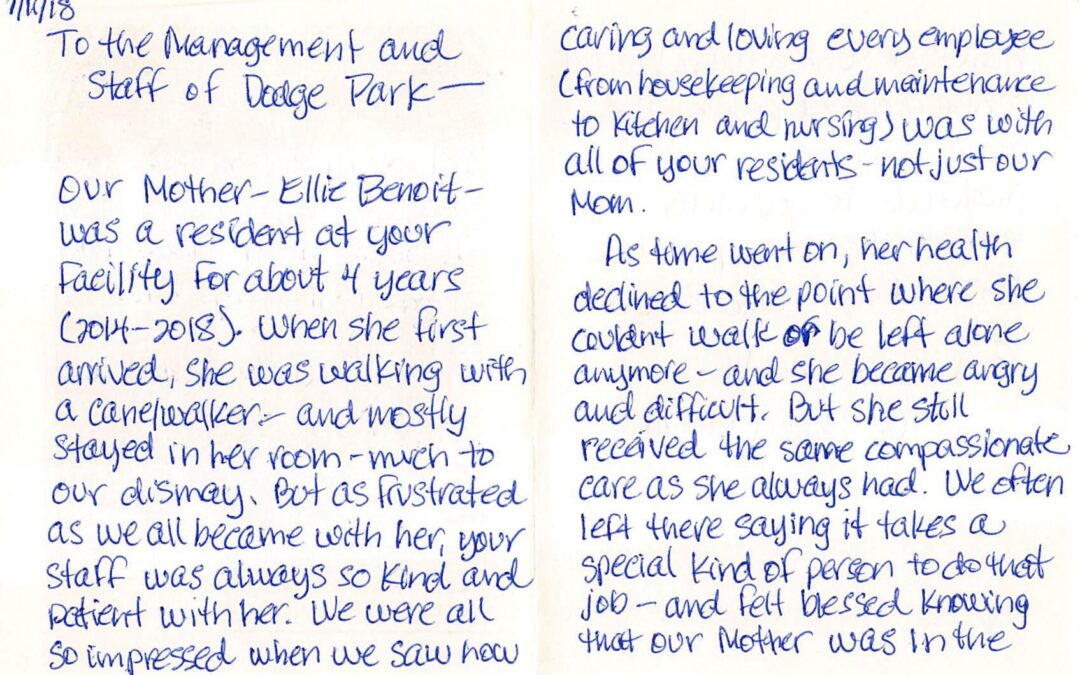 To the Management and
Staff of Dodge Park—
Our Mother - Ellie Benoit -
was a resident at your
Facility For about 4 years
(2014-2018). When she first
arrived, she was walking with
a cane/walker - and mostly
stayed in her room - much to
our dismay. But as frustrated
as we all became with her, your
staff was always so kind and
patient with her. We were all
so impressed when we saw how
caring and loving every employee
(from housekeeping and maintenance
to kitchen and nursing) was with
all of your residents - not just our
Mom.
As time went on, her health
declined to the point where she
couldnt walk or be left alone
anymore - and she became angry
and difficult. But she still
received the same compassionate
care as she always had. We often
left there saying it takes a
special kind of person to do that
job - and felt blessed knowing
that our Mother was in the